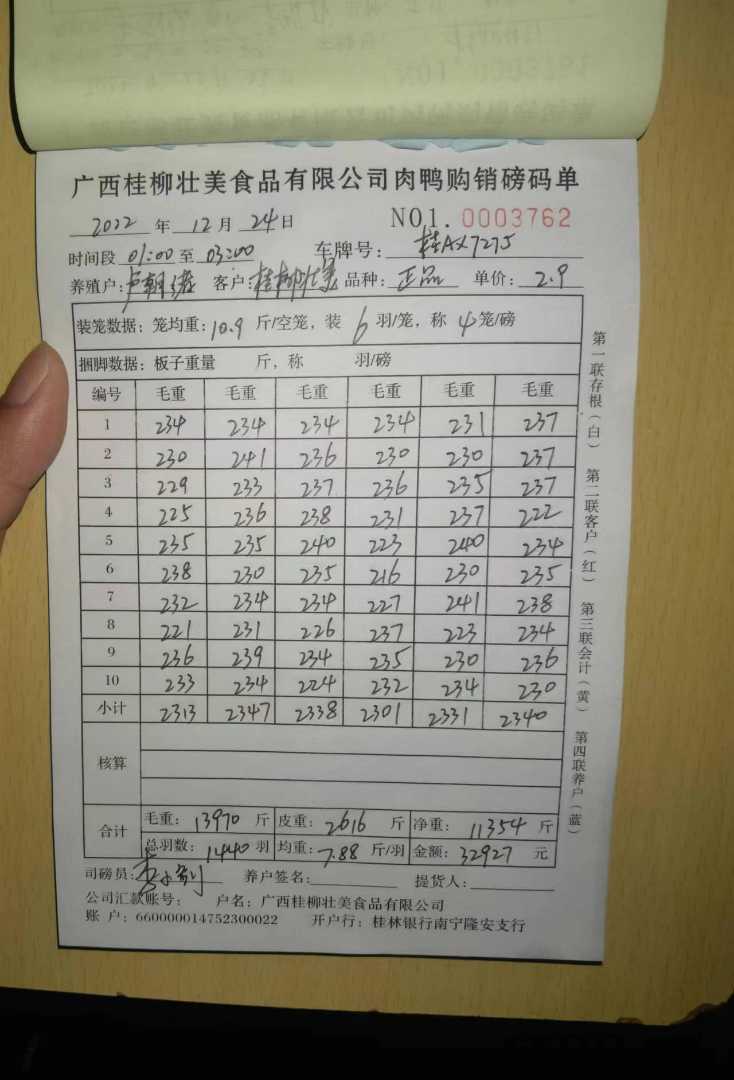 广西桂柳壮美食品有限公司肉鸭购销磅码单
2022 年 12 月 24 日 NO1. 0003762
时间段 01:00 至 03:00 车牌号: 桂AX7275
养殖户: 卢朝 客户: 桂柳壮美 品种: 正品 单价: 2.9
装笼数据: 笼均重: 10.9 斤/空笼, 装 6 羽/笼, 称 4 笼/磅
捆脚数据: 板子重量 斤, 称 羽/磅
编号 毛重 毛重 毛重 毛重 毛重 毛重
1 234 234 234 234 231 237
2 230 241 236 230 230 237
3 229 233 237 236 235 237
4 225 236 238 231 237 222
5 235 235 240 223 240 234
6 238 230 235 216 230 235
7 232 234 234 227 241 238
8 221 231 226 237 223 234
9 236 239 234 235 230 236
10 233 234 224 232 234 230
小计 2313 2347 2338 2301 2331 2340
核算
合计 毛重: 13970 斤 皮重: 2616 斤 净重: 11354 斤
总羽数: 1440 羽 均重: 7.88 斤/羽 金额: 32927 元
司磅员: 养户签名: 提货人:
公司汇款账号: 户名: 广西桂柳壮美食品有限公司
账 户: 660000014752300022 开户行: 桂林银行南宁隆安支行
第一联存根(白) 第二联客户(红) 第三联会计(黄) 第四联养户(蓝)